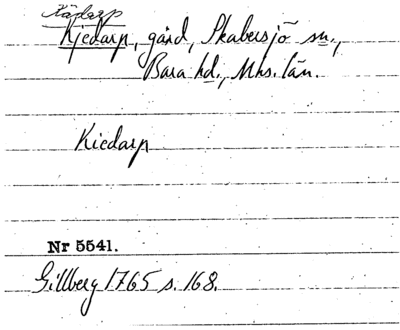 Kädarp
Kiedarp, gård, Skabersjö sn.,
Bara hd., Mhs. län.
Kiedarp
Nr 5541.
Gillberg 1765 s. 168.